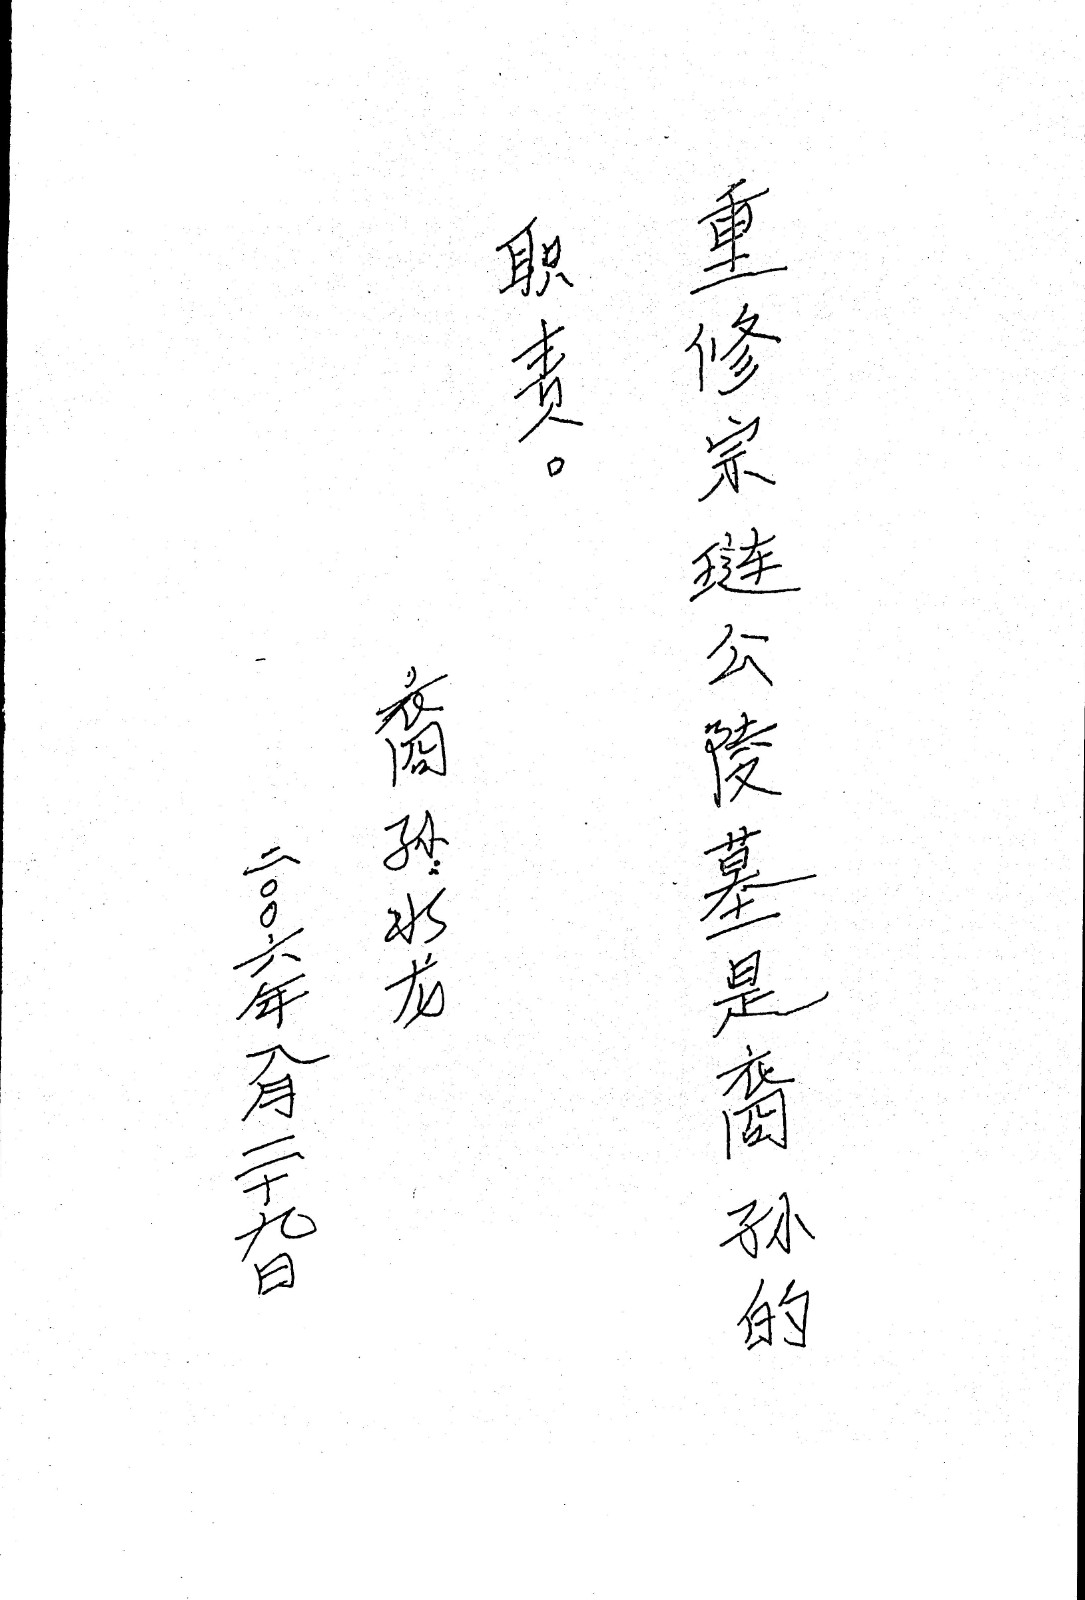 重修宗琏公陵墓是裔孙的
职责。
裔孙：水龙
二〇〇六年八月二十九日